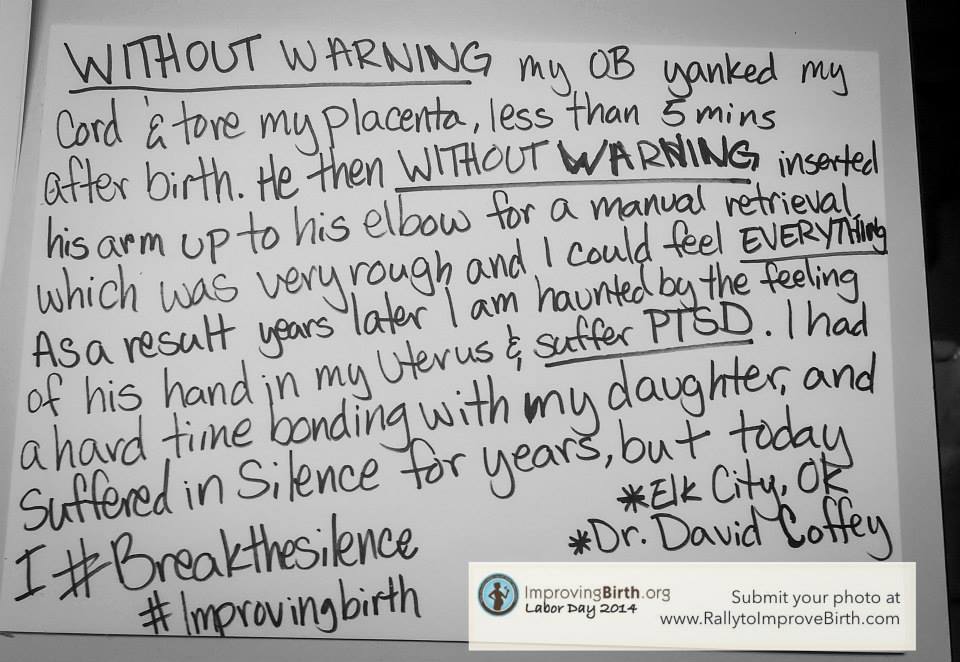 WITHOUT WARNING my OB yanked my
Cord & tore my placenta, less than 5 mins
after birth. He then WITHOUT WARNING inserted
his arm up to his elbow for a manual retrieval,
which was very rough and I could feel EVERYTHing
As a result years later I am haunted by the feeling
of his hand in my Uterus & suffer PTSD. I had
a hard time bonding with my daughter, and
Suffered in Silence for years, but today
I #Breakthesilence
#Improvingbirth
*Elk City, OK
*Dr. David Coffey
ImprovingBirth.org
LABOR DAY 2014
Submit your photo at
www.RallytoImproveBirth.com